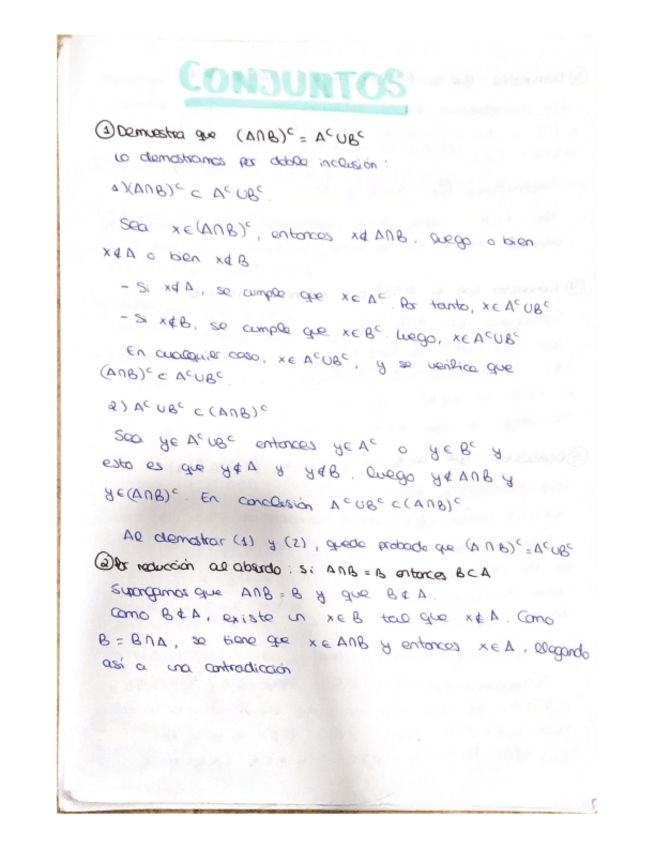 CONJUNTOS
① Demuestra que (A∩B)ᶜ = Aᶜ∪Bᶜ
Lo demostramos por doble inclusión:
1)(A∩B)ᶜ ⊂ Aᶜ∪Bᶜ.
Sea x∈(A∩B)ᶜ, entonces x∉A∩B. Luego o bien
x∉A o bien x∉B.
- Si x∉A, se cumple que x∈Aᶜ. Por tanto, x∈Aᶜ∪Bᶜ
- Si x∉B, se cumple que x∈Bᶜ. Luego, x∈Aᶜ∪Bᶜ
En cualquier caso, x∈Aᶜ∪Bᶜ, y se verifica que
(A∩B)ᶜ ⊂ Aᶜ∪Bᶜ.
2) Aᶜ∪Bᶜ ⊂ (A∩B)ᶜ
Sea y∈Aᶜ∪Bᶜ entonces y∈Aᶜ o y∈Bᶜ y
esto es que y∉A y y∉B. Luego y∉A∩B y
y∈(A∩B)ᶜ. En conclusión Aᶜ∪Bᶜ ⊂ (A∩B)ᶜ.
Al demostrar (1) y (2), queda probado que (A∩B)ᶜ = Aᶜ∪Bᶜ
② Por reducción al absurdo: Si A∩B = B entonces B⊂A
Supongamos que A∩B = B y que B⊄A.
Como B⊄A, existe un x∈B tal que x∉A. Como
B = B∩A, se tiene que x∈A∩B y entonces x∈A, llegando
así a una contradicción